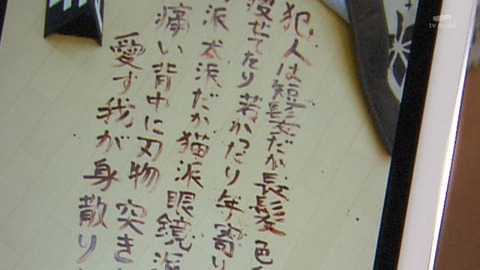 犯人は短髪だが長髪 色
痩せてたり若かったり年寄り
派犬派だか猫派眼鏡派
痛い背中に刃物 突き
愛す我が身 散り